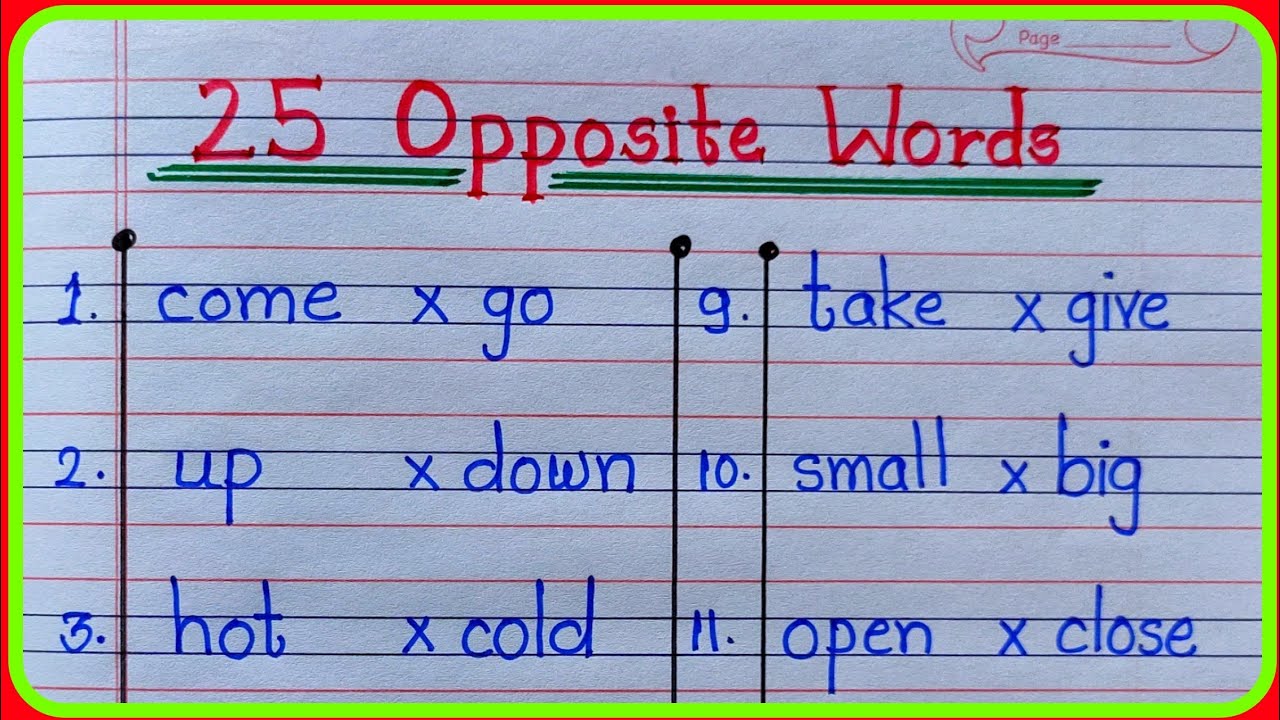 Page
25 Opposite Words
1. come x go
2. up x down
3. hot x cold
9. take x give
10. small x big
11. open x close